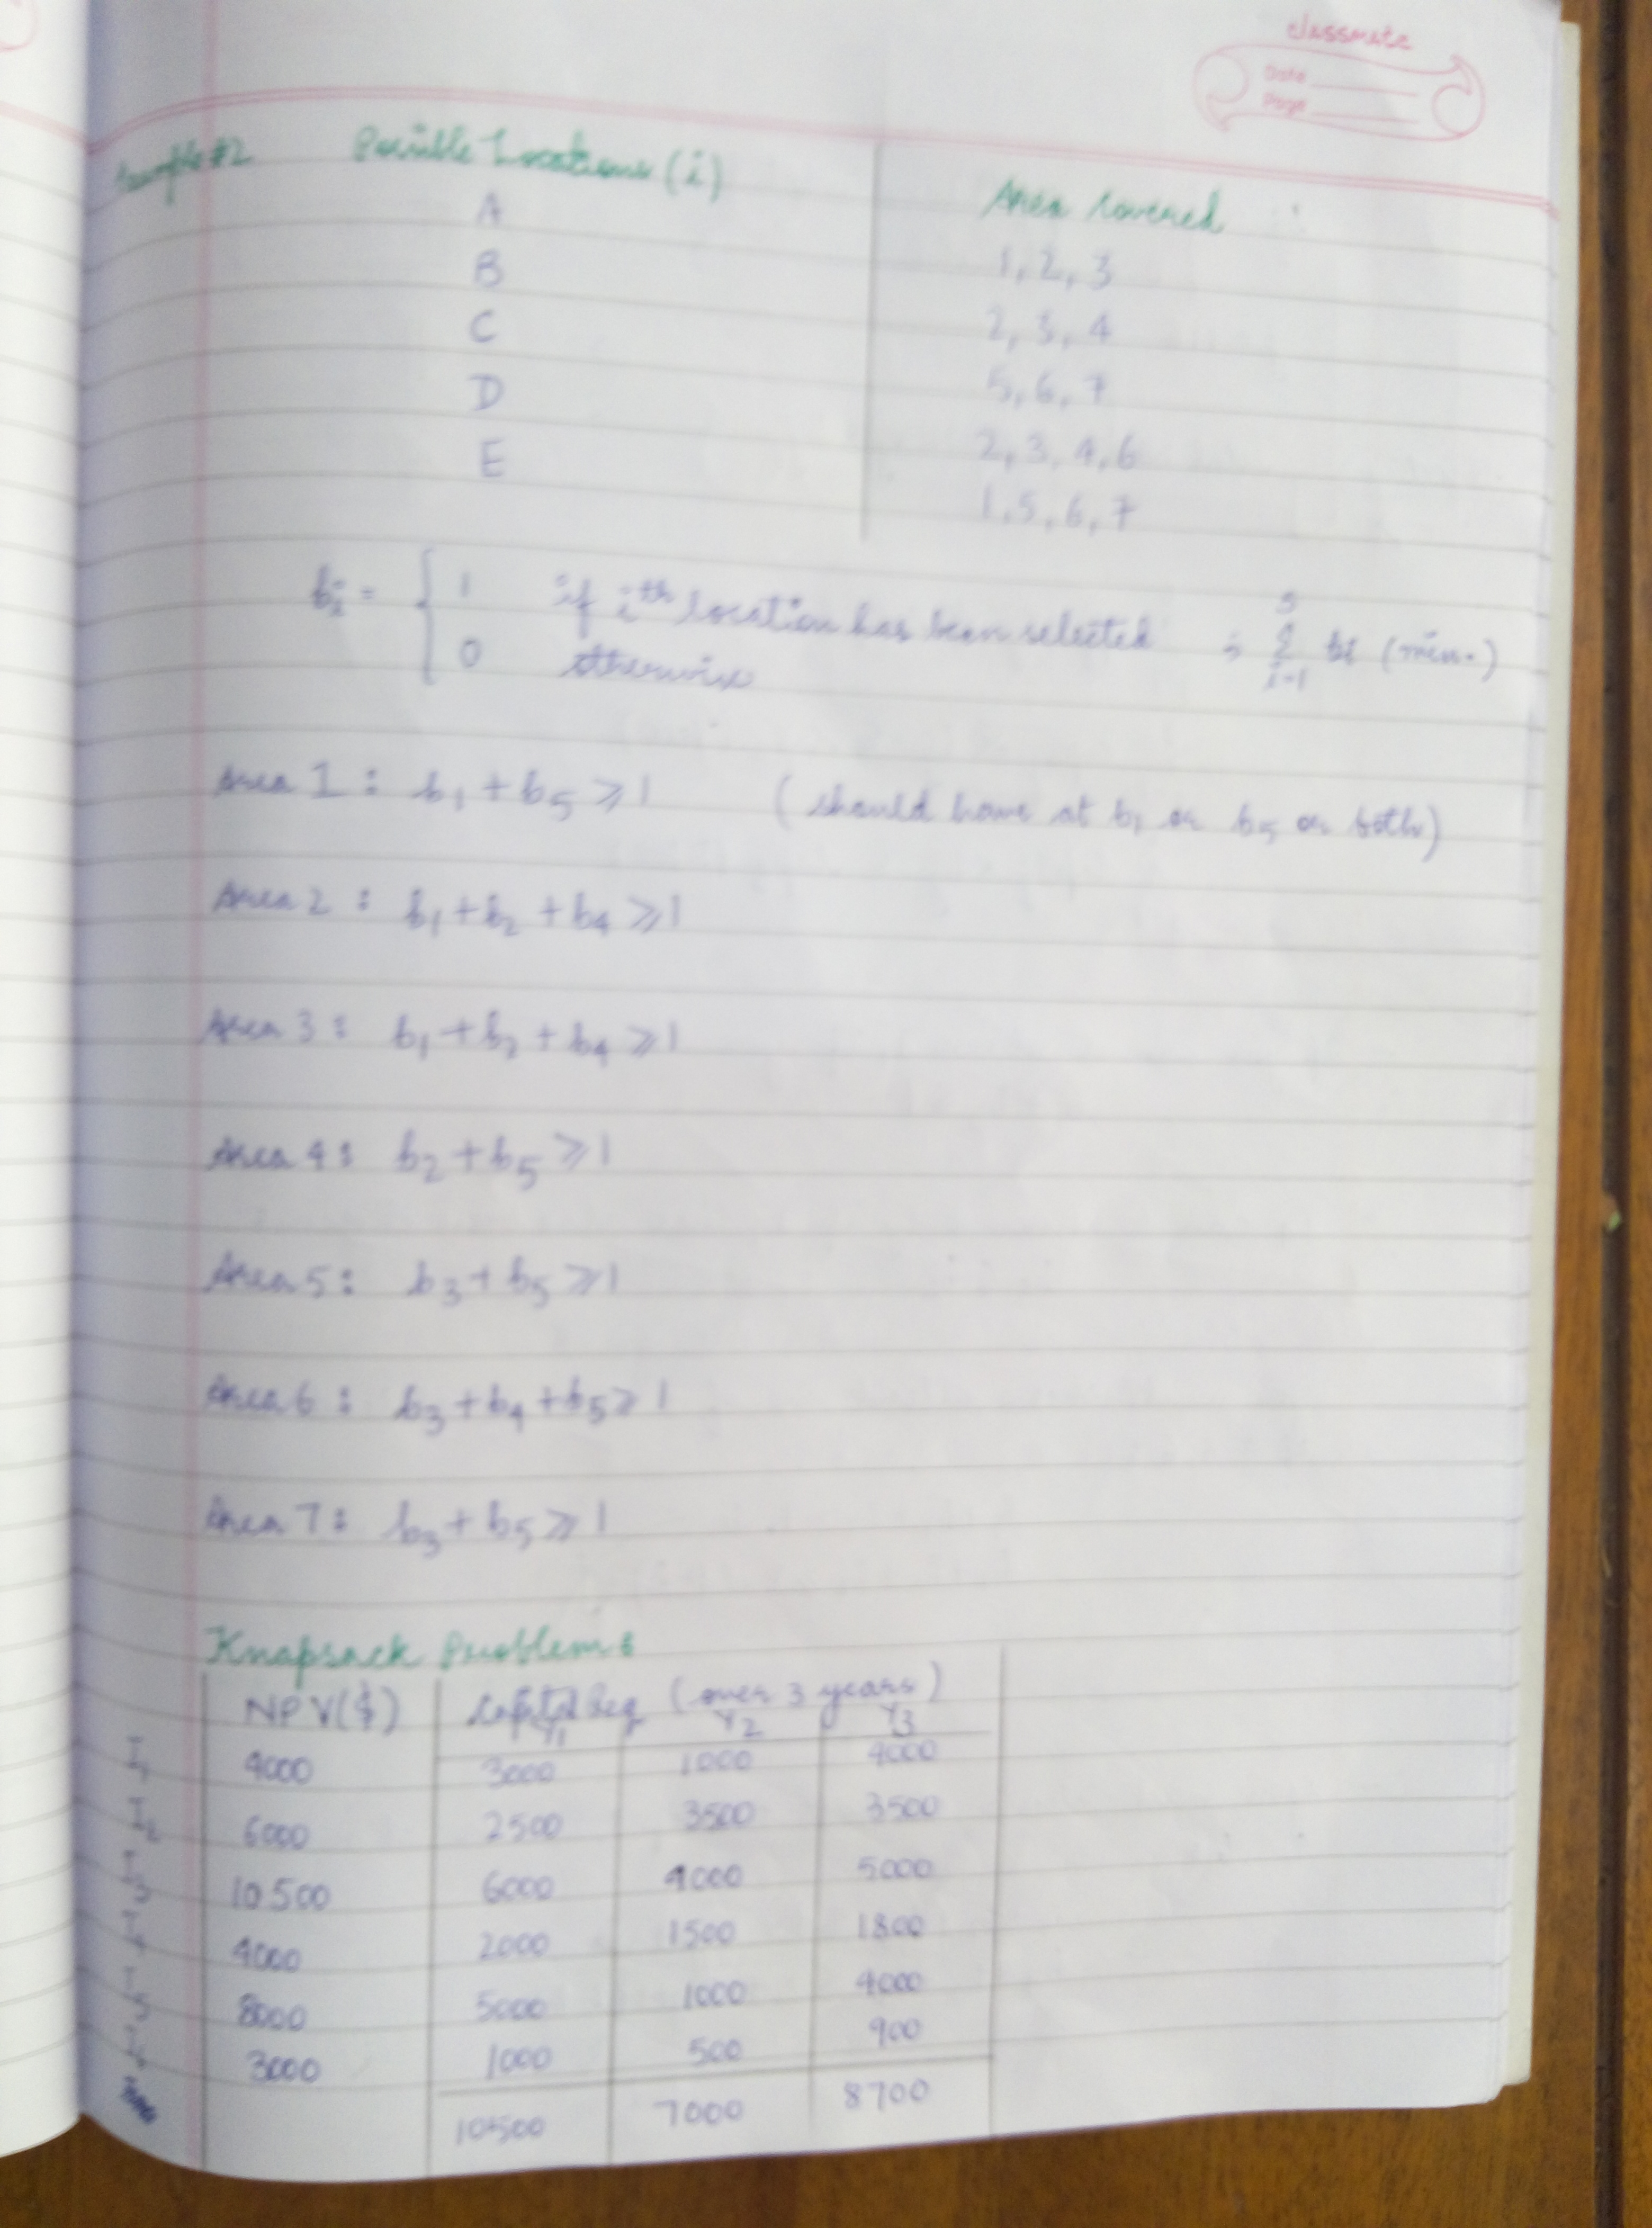 classmate
Date
Page
Example #2 Possible Locations (i) Area covered
A 1, 2, 3
B 2, 3, 4
C 5, 6, 7
D 2, 3, 4, 6
E 1, 5, 6, 7
bi = { 1 if ith location has been selected ; 5 Σ i=1 bi (min.)
0 otherwise
Area 1 : b1 + b5 ⩾ 1 (should have at b1 or b5 or both)
Area 2 : b1 + b2 + b4 ⩾ 1
Area 3 : b1 + b2 + b4 ⩾ 1
Area 4 : b2 + b5 ⩾ 1
Area 5 : b3 + b5 ⩾ 1
Area 6 : b3 + b4 + b5 ⩾ 1
Area 7 : b3 + b5 ⩾ 1
Knapsack Problem :
NPV($) Capital Req (over 3 years)
Y1 Y2 Y3
I1 4000 3000 1000 4000
I2 6000 2500 3500 3500
I3 10500 6000 4000 5000
I4 4000 2000 1500 1800
I5 8000 5000 1000 4000
3000 1000 500 900
10500 7000 8700